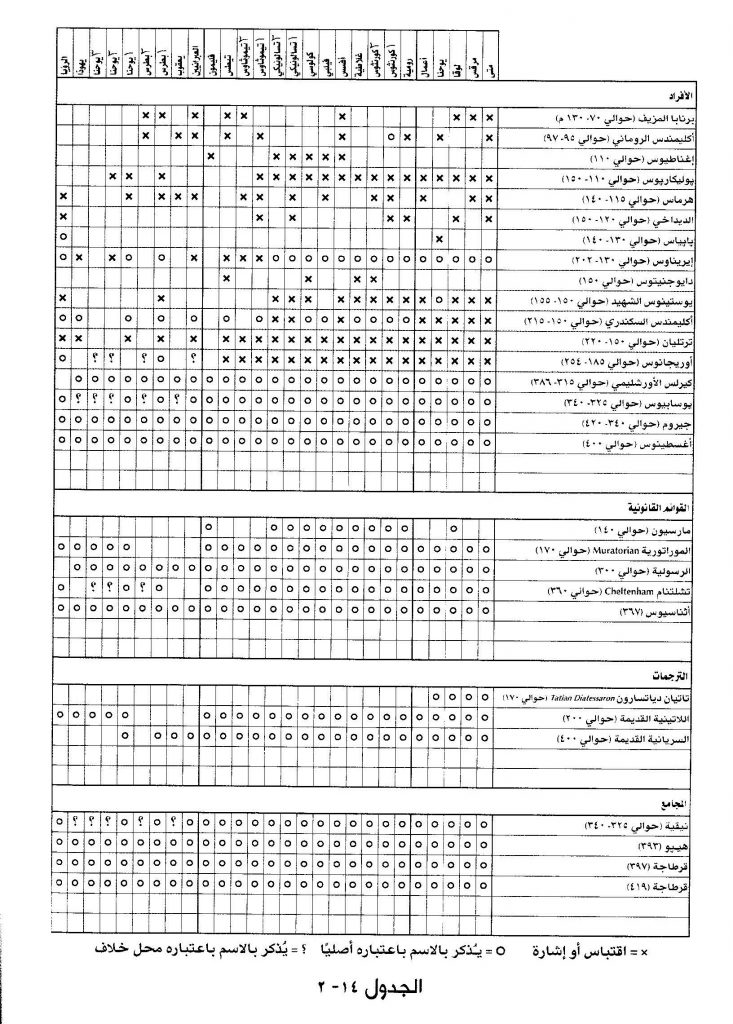 متى مرقس لوقا يوحنا أعمال رومية ١ كورنثوس ٢ كورنثوس غلاطية أفسس فيلبي كولوسي ١ تسالونيكي ٢ تسالونيكي ١ تيموثاوس ٢ تيموثاوس تيطس فليمون العبرانيين يعقوب ١ بطرس ٢ بطرس ١ يوحنا ٢ يوحنا ٣ يوحنا يهوذا الرؤيا
الأفراد
برنابا المزيف (حوالي ٧٠- ١٣٠ م)
أكليمندس الروماني (حوالي ٩٥- ٩٧)
إغناطيوس (حوالي ١١٠)
بوليكاربوس (حوالي ١١٠- ١٥٠)
هرماس (حوالي ١١٥- ١٤٠)
الديداخي (حوالي ١٢٠- ١٥٠)
بابياس (حوالي ١٣٠- ١٤٠)
إيريناوس (حوالي ١٣٠- ٢٠٢)
دايوجنيتوس (حوالي ١٥٠)
يوستينوس الشهيد (حوالي ١٥٠- ١٥٥)
أكليمندس السكندري (حوالي ١٥٠- ٢١٥)
ترتليان (حوالي ١٥٠- ٢٢٠)
أوريجانوس (حوالي ١٨٥- ٢٥٤)
كيرلس الأورشليمي (حوالي ٣١٥- ٣٨٦)
يوسابيوس (حوالي ٣٢٥- ٣٤٠)
جيروم (حوالي ٣٤٠- ٤٢٠)
أغسطينوس (حوالي ٤٠٠)
القوائم القانونية
مارسيون (حوالي ١٤٠)
الموراتورية Muratorian (حوالي ١٧٠)
الرسولية (حوالي ٣٠٠)
تشلتنام Cheltenham (حوالي ٣٦٠)
أثناسيوس (٣٦٧)
الترجمات
تاتيان دياتسارون Tatian Diatessaron (حوالي ١٧٠)
اللاتينية القديمة (حوالي ٢٠٠)
السريانية القديمة (حوالي ٤٠٠)
المجامع
نيقية (حوالي ٣٢٥- ٣٤٠)
هيبو (٣٩٣)
قرطاجة (٣٩٧)
قرطاجة (٤١٩)
× = اقتباس أو إشارة O = يُذكر بالاسم باعتباره أصليًا ؟ = يُذكر بالاسم باعتباره محل خلاف
الجدول ١٤- ٢